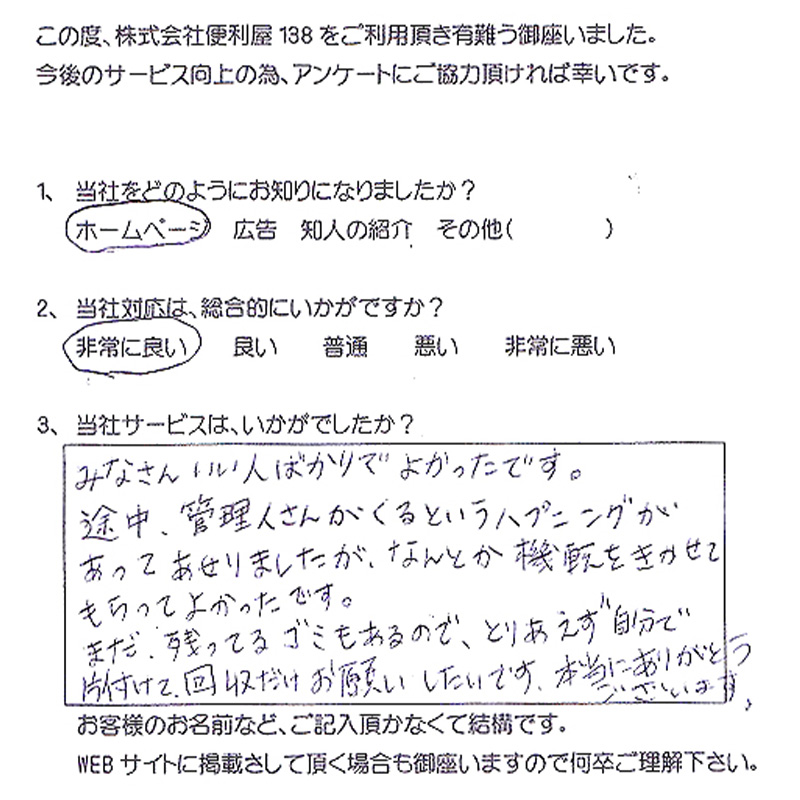 この度、株式会社便利屋138をご利用頂き有難う御座いました。
今後のサービス向上の為、アンケートにご協力頂ければ幸いです。
1、 当社をどのようにお知りになりましたか？
ホームページ 広告 知人の紹介 その他( )
2、 当社対応は、総合的にいかがですか？
非常に良い 良い 普通 悪い 非常に悪い
3、 当社サービスは、いかがでしたか？
みなさんいい人ばかりでよかったです。
途中、管理人さんがくるというハプニングが
あってあせりましたが、なんとか機転をきかせて
もらってよかったです。
まだ、残ってるゴミもあるので、とりあえず自分で
片付けて、回収だけお願いしたいです、本当にありがとう
ございます。
お客様のお名前など、ご記入頂かなくて結構です。
WEBサイトに掲載さして頂く場合も御座いますので何卒ご理解下さい。